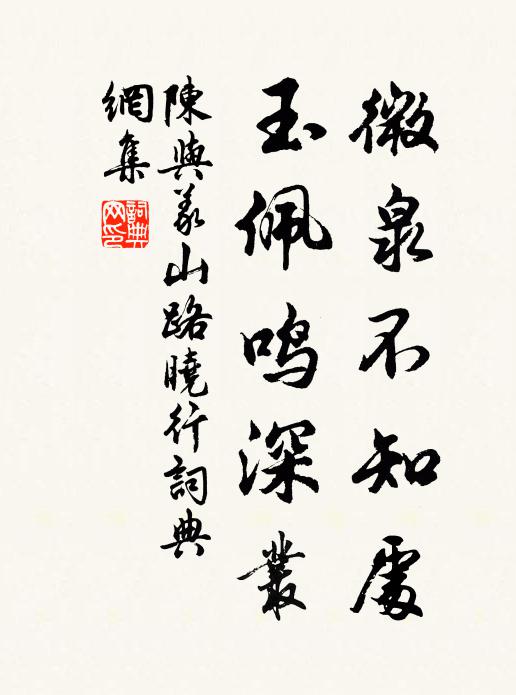 微泉不知處
玉佩鸣深叢
陳與義山路曉行詞典
網集
詞典
网印